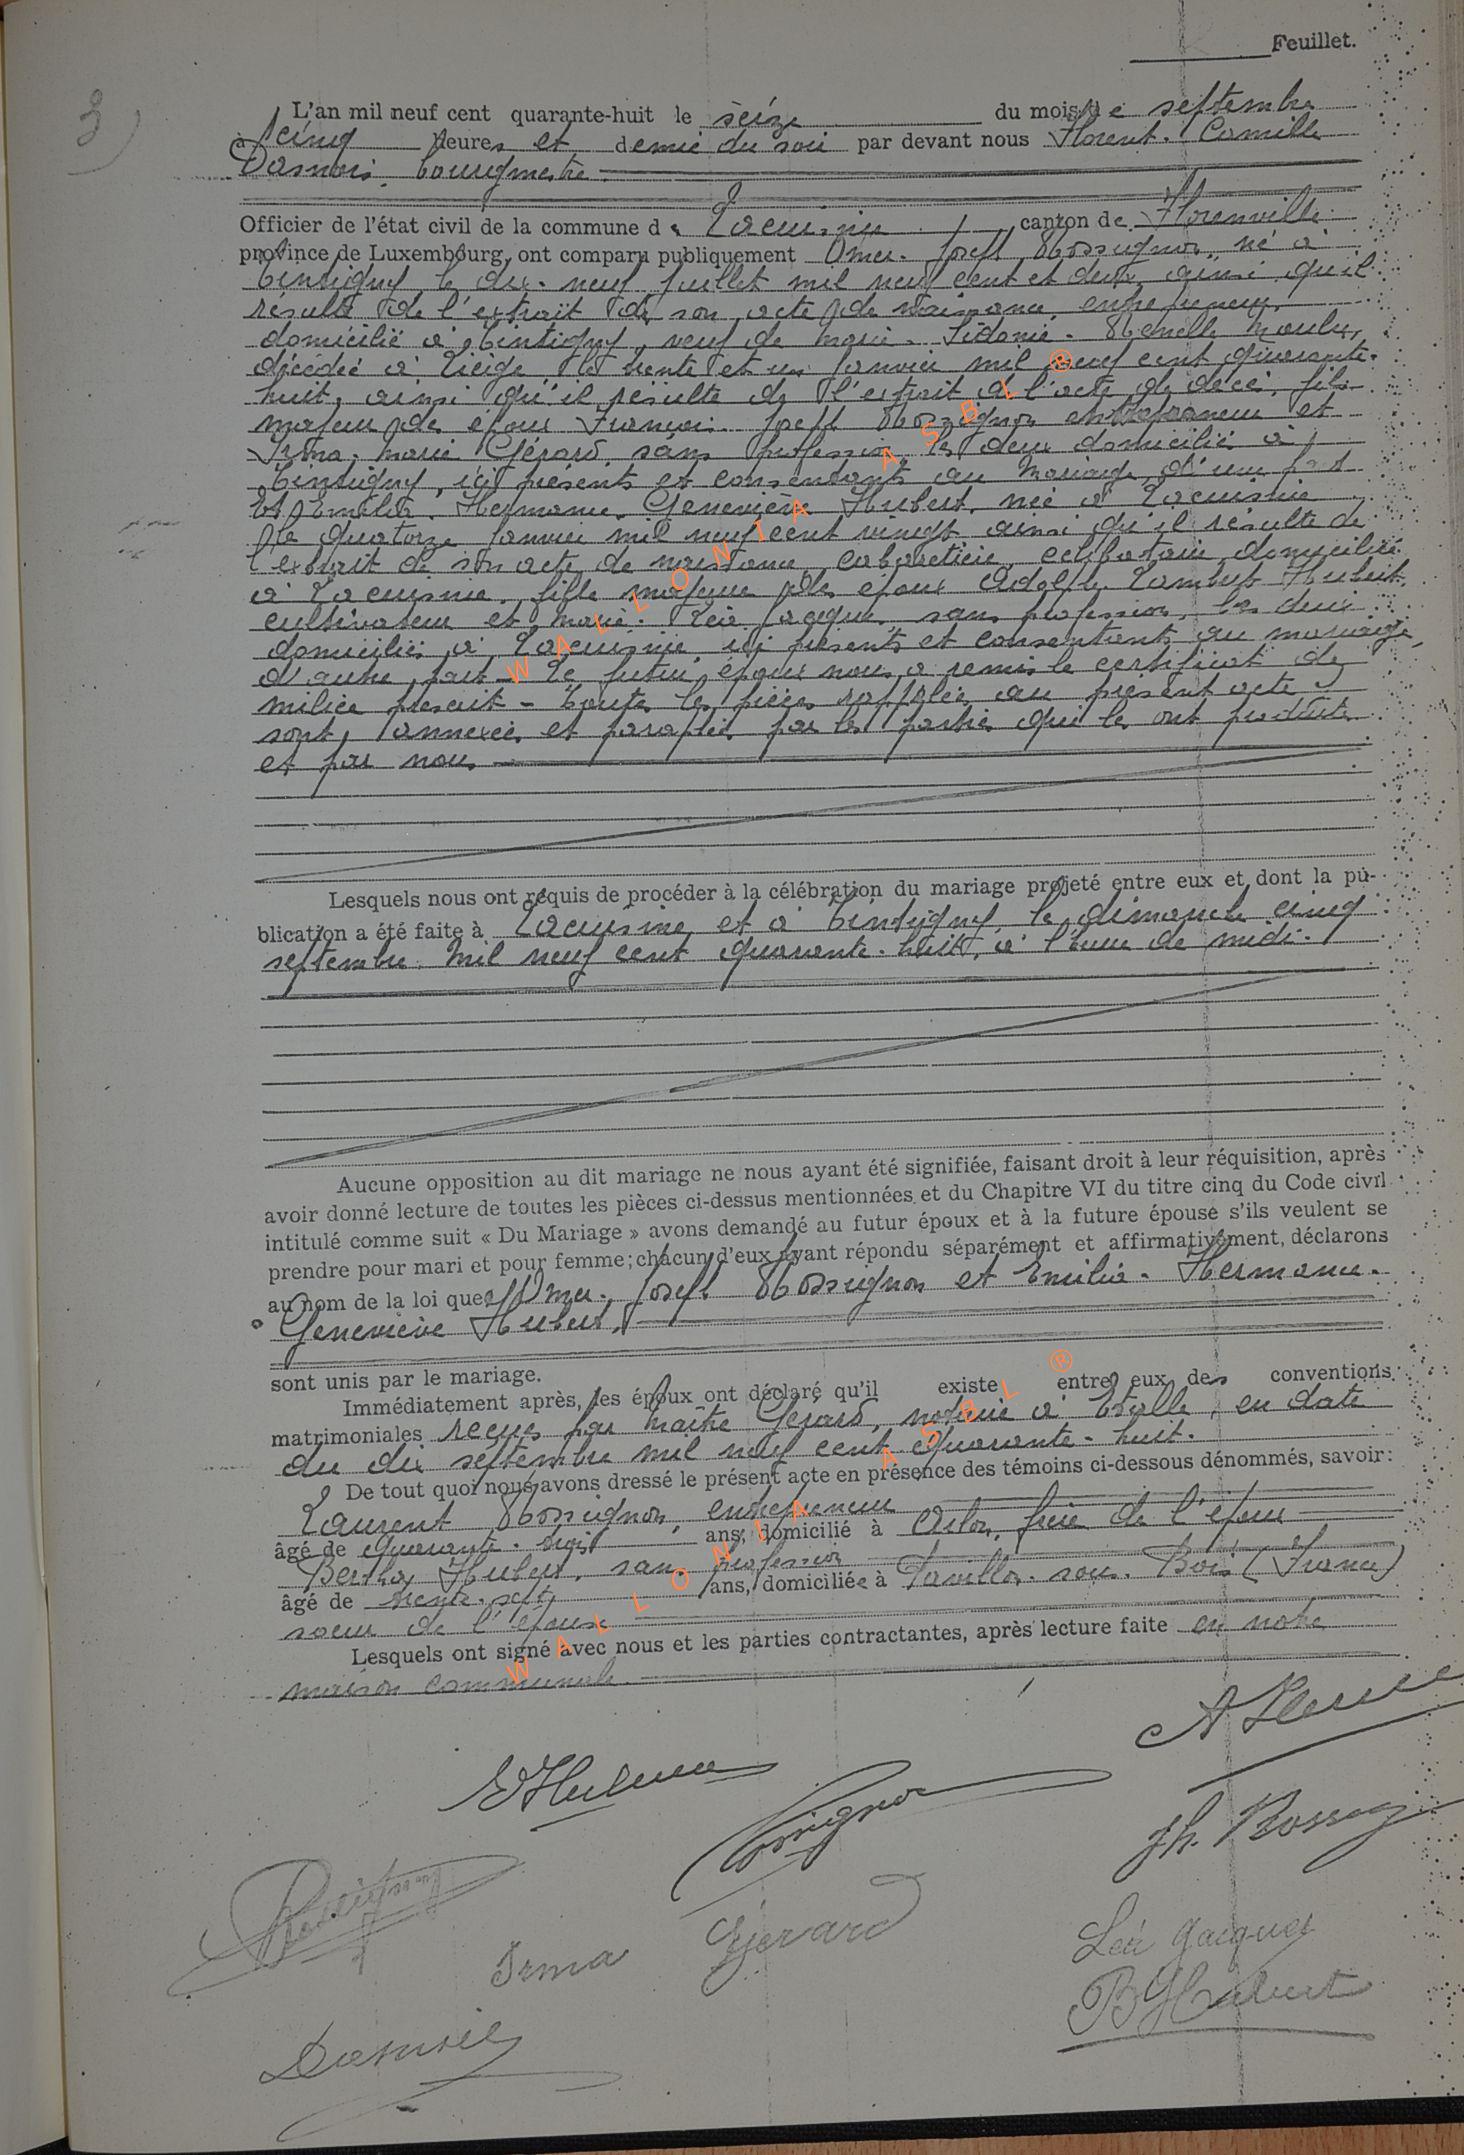 Feuillet.
3)
L'an mil neuf cent quarante-huit le seize du mois de septembre
à cinq heures et demie du soir par devant nous Florent. Camille
Dasnois, bourgmestre
Officier de l'état civil de la commune de Lacuisine canton de Florenville
province de Luxembourg, ont comparu publiquement Omer. Joseph Rossignon, né à
Tintigny le dix-neuf juillet mil neuf cent et deux, ainsi qu'il
résulte de l'extrait de son acte de naissance, entrepreneur,
domicilié à Tintigny, veuf de Marie. Sidonie.
décédée à Liège le trente et un janvier mil neuf cent quarante-
huit, ainsi qu'il résulte de l'extrait de l'acte de décès, fils
majeur des époux François. Joseph Rossignon entrepreneur et
Irma. Marie Gérard, sans profession, les deux domiciliés à
Tintigny, ici présents et consentants au mariage, d'une part
Et Emilia. Hermance. Geneviève Hubert, née à Lacuisine
le quatorze janvier mil neuf cent vingt ainsi qu'il résulte de
l'extrait de son acte de naissance, cabaretière, célibataire, domiciliée
à Lacuisine, fille majeure des époux Adolphe Lambert Hubert,
cultivateur et Marie. Léa Jacques, sans profession, les deux
domiciliés à Lacuisine, ici présents et consentants au mariage,
d'autre part - Le futur époux nous a remis le certificat de
milice prescrit - Toutes les pièces rappelées au présent acte
sont annexées et paraphées par les parties qui les ont produites
et par nous
Lesquels nous ont requis de procéder à la célébration du mariage projeté entre eux et dont la pu-
blication a été faite à Lacuisine et à Tintigny, le dimanche cinq
septembre mil neuf cent quarante-huit, à l'heure de midi.
Aucune opposition au dit mariage ne nous ayant été signifiée, faisant droit à leur réquisition, après
avoir donné lecture de toutes les pièces ci-dessus mentionnées et du Chapitre VI du titre cinq du Code civil
intitulé comme suit « Du Mariage » avons demandé au futur époux et à la future épouse s'ils veulent se
prendre pour mari et pour femme; chacun d'eux ayant répondu séparément et affirmativement, déclarons
au nom de la loi que Omer. Joseph Rossignon et Emilia. Hermance.
Geneviève Hubert,
sont unis par le mariage.
Immédiatement après, les époux ont déclaré qu'il existe entre eux des conventions
matrimoniales reçues par Maître Gérard, notaire à Etalle, en date
du dix septembre mil neuf cent quarante-huit.
De tout quoi nous avons dressé le présent acte en présence des témoins ci-dessous dénommés, savoir:
Laurent Rossignon, entrepreneur
âgé de quarante. ans, domicilié à Arlon, frère de l'époux
Bertha Hubert, sans profession
âgé de trente-sept ans, domiciliée à Pavillon. sous. Bois (France)
soeur de l'épouse
Lesquels ont signé avec nous et les parties contractantes, après lecture faite en notre
maison communale.
Rossignon
Irma Gérard
Léa Jacques
B Hubert
WALLONIA ASBL ®
WALLONIA ASBL ®